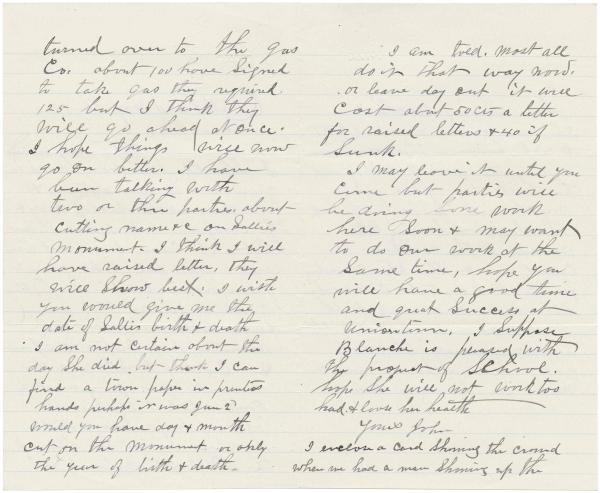 turned over to the gas
Co. about 100 have signed
to take gas they required
125 but I think they
will go ahead at once.
I hope things will now
go on better. I have
been talking with
two or three parties about
cutting name &c on Sallies
monument. I think I will
have raised letter, they
will show best. I wish
you would give me the
date of Sallies birth & death
I am not certain about the
day she died, but think I can
find a town paper in printers
hands perhaps it was Jun 2"
would you have day & month
cut on the monument or only
the year of birth & death.
I am told. most all
do it that way now.
or leave day out it will
cost about 50cts a letter
for raised letters & 40 if
sunk.
I may leave it until you
come but parties will
be doing some work
here soon & may want
to do our work at the
same time, hope you
will have a good time
and great success at
Uniontown. I suppose
Blanche is pleased with
the prospect of school.
hope she will not work too
hard & loose her health
Yours John
I enclose a card showing the crowd
when we had a man shining up the